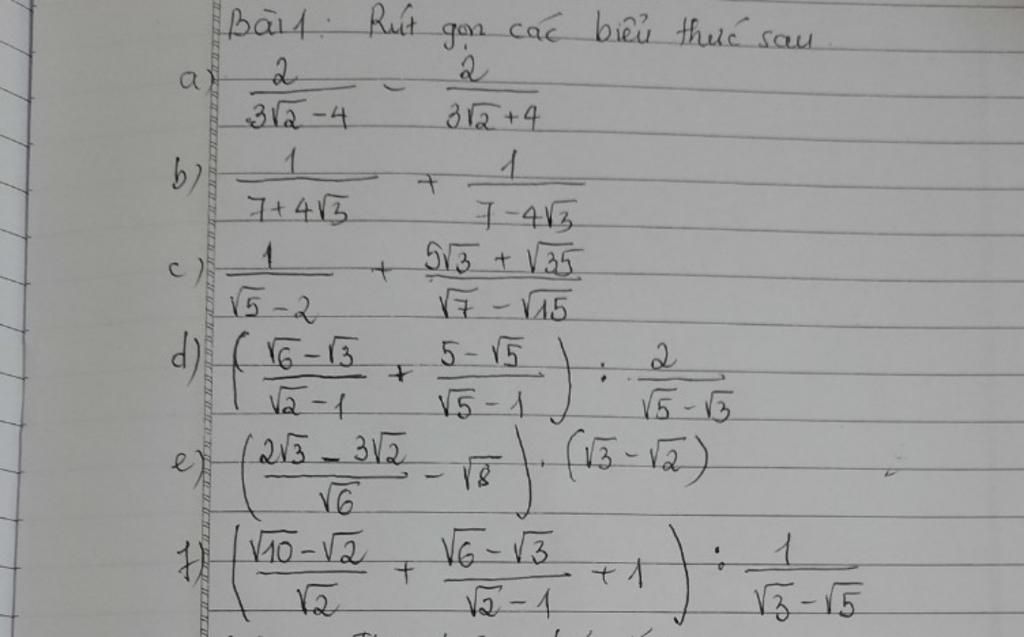 Bài 1: Rút gọn các biểu thức sau
a) 2/(3√2 - 4) - 2/(3√2 + 4)
b) 1/(7 + 4√3) + 1/(7 - 4√3)
c) 1/(√5 - 2) + (5√3 + √35)/(√7 - √15)
d) ((√6 - √3)/(√2 - 1) + (5 - √5)/(√5 - 1)) : 2/(√5 - √3)
e) ((2√3 - 3√2)/√6 - √8) . (√3 - √2)
f) ((√10 - √2)/√2 + (√6 - √3)/(√2 - 1) + 1) : 1/(√3 - √5)